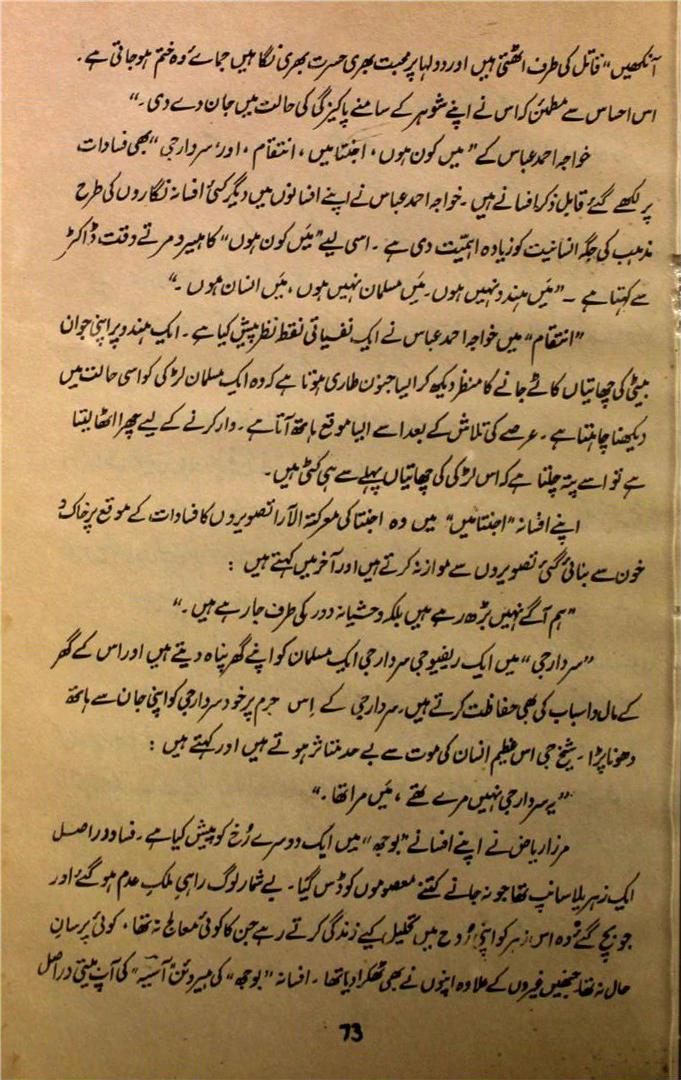 آنکھیں“ قاتل کی طرف اٹھتی ہیں اور دولہا پر محبت بھری حسرت بھری نگاہیں جمائے وہ ختم ہو جاتی ہے۔
اس احساس سے مطمئن کہ اس نے اپنے شوہر کے سامنے پاکیزگی کی حالت میں جان دے دی۔“
خواجہ احمد عباس کے ”میں کون ہوں، اجنتا میں، انتقام، اور سردار جی“ بھی فسادات
پر لکھے گئے قابل ذکر افسانے ہیں۔ خواجہ احمد عباس نے اپنے افسانوں میں دیگر کئی افسانہ نگاروں کی طرح
مذہب کی جگہ انسانیت کو زیادہ اہمیّت دی ہے۔ اسی لیے ”مَیں کون ہوں“ کا ہیرو مرتے وقت ڈاکٹر
سے کہتا ہے۔ ”مَیں ہندو نہیں ہوں۔ مَیں مسلمان نہیں ہوں، مَیں انسان ہوں۔“
”انتقام“ میں خواجہ احمد عباس نے ایک نفسیاتی نقطہ نظر پیش کیا ہے۔ ایک ہندو پر اپنی جوان
بیٹی کی چھاتیاں کاٹے جانے کا منظر دیکھ کر ایسا جنون طاری ہوتا ہے کہ وہ ایک مسلمان لڑکی کو اسی حالت میں
دیکھنا چاہتا ہے۔ عرصے کی تلاش کے بعد اسے ایسا موقع ہاتھ آتا ہے۔ وار کرنے کے لیے چھرا اٹھا لیتا
ہے تو اسے پتہ چلتا ہے کہ اس لڑکی کی چھاتیاں پہلے سے ہی کٹی ہیں۔
اپنے افسانہ ”اجنتا میں“ میں وہ اجنتا کی معرکتہ الآرا تصویروں کا فسادات کے موقع پر خاک و
خون سے بنائی گئی تصویروں سے موازنہ کرتے ہیں اور آخر میں کہتے ہیں :
”ہم آگے نہیں بڑھ رہے ہیں بلکہ وحشیانہ دور کی طرف جا رہے ہیں۔“
”سردار جی“ میں ایک ریفیوجی سردار جی ایک مسلمان کو اپنے گھر پناہ دیتے ہیں اور اس کے گھر
کے مال و اسباب کی بھی حفاظت کرتے ہیں۔ سردار جی کے اِس جرم پر خود سردار جی کو اپنی جان سے ہاتھ
دھونا پڑا۔ شیخ جی اس عظیم انسان کی موت سے بے حد متاثر ہوتے ہیں اور کہتے ہیں :
”یہ سردار جی نہیں مرے تھے، مَیں مرا تھا۔“
مرزا ریاض نے اپنے افسانے ”بوجھ“ میں ایک دوسرے رُخ کو پیش کیا ہے۔ فساد دراصل
ایک زہریلا سانپ تھا جو نہ جانے کتنے معصوموں کو ڈس گیا۔ بے شمار لوگ راہیِ ملکِ عدم ہو گئے اور
جو بچ گئے تو وہ اس زہر کو اپنی رُوح میں تحلیل کیے زندگی کرتے رہے جن کا کوئی معالج نہ تھا، کوئی پرسانِ
حال نہ تھا۔ جنھیں غیروں کے علاوہ اپنوں نے بھی ٹھکرا دیا تھا۔ افسانہ ”بوجھ“ کی ہیروئن ”آسیہ“ کی آپ بیتی دراصل
73